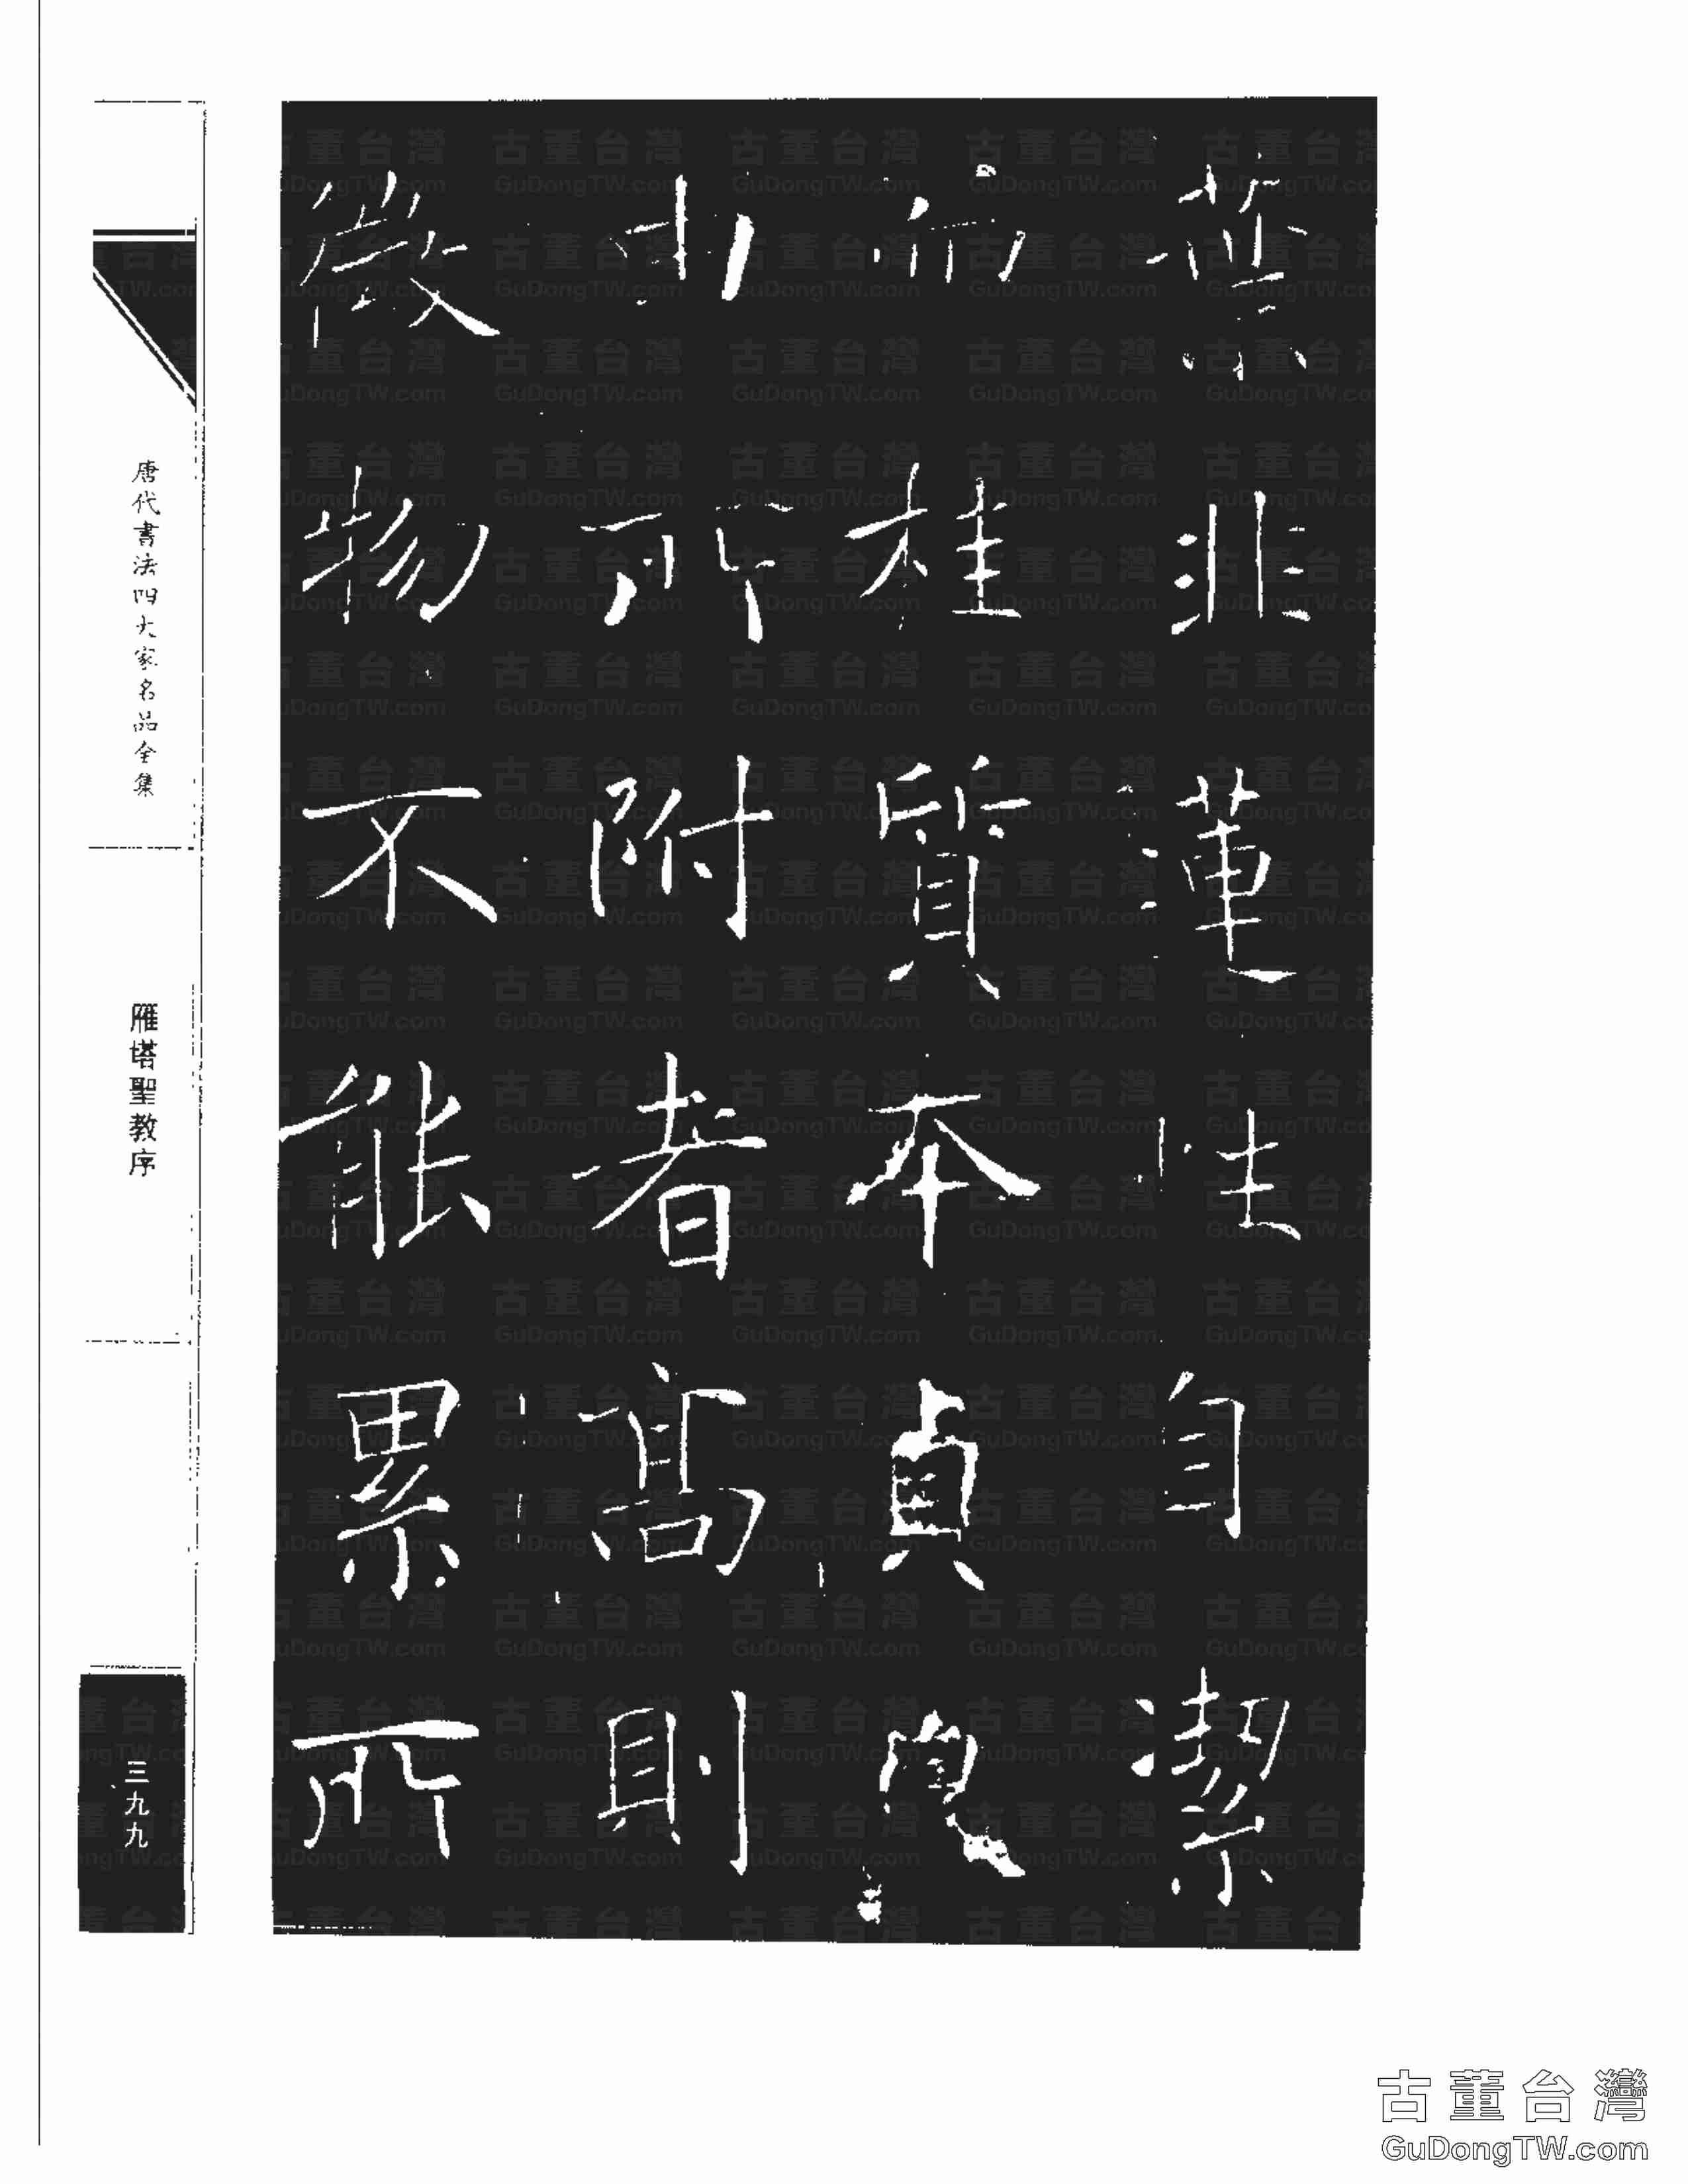 葉非蓮性自潔
而桂質本貞良
由所附者高則
微物不能累所
唐代書法四大家名品全集
雁塔聖教序
三九九
古董台灣
GuDongTW.com